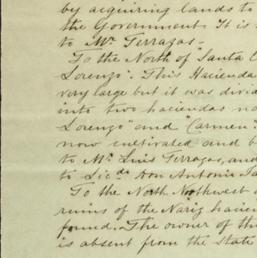 by acquiring lands to
the Government. It is
to Mr. Terrazas.
To the North of "Santa
Lorenzo". This Hacienda
very large but it was divi
into two haciendas
Lorenzo" and "Carmen
now cultivated and b
to Mr. Luis Terrazas, and
to Licdo Don Antonio
To the North Northwest
ruins of the Nariz hacien
found. The owner of th
is absent from the State